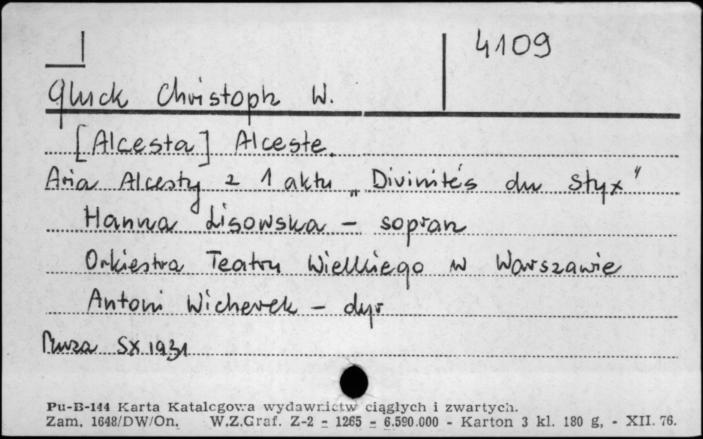 4109
Gluck Christoph W.
[Alcesta] Alceste.
Aria Alcesty z 1 aktu „Divinités du Styx"
Hanna Lisowska - sopran
Orkiestra Teatru Wielkiego w Warszawie
Antoni Wicherek - dyr
Muza SX 1931
Pu-B-144 Karta Katalogowa wydawnictw ciągłych i zwartych.
Zam. 1648/DW/On. W.Z.Graf. Z-2 - 1265 - 6.590.000 - Karton 3 kl. 180 g, - XII. 76.